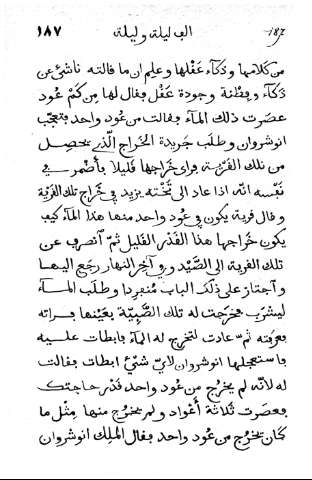 ١٨٧ الف ليلة وليلة ١٨٧
من كلامها وذكاء عقلها وعلم ان ما قالته ناشئ عن
ذكاء وفطنة وجودة عقل فقال لها من كم عود
عصرت ذلك الماء فقالت من عود واحد فتعجب
انوشروان وطلب جريدة الخراج الذي يحصل
من تلك القرية فراى خراجها قليلا فاضمر في
نفسه انه اذا عاد الى تخته يزيد في خراج تلك القرية
وقال قرية يكون في عود واحد منها هذا الماء كيف
يكون خراجها هذا القدر القليل ثم انصرف عن
تلك القرية الى الصيد وفي آخر النهار رجع اليها
واجتاز على ذلك الباب منفردا وطلب الماء
ليشرب فخرجت له تلك الصبية بعينها فراته
فعرفته ثم عادت لتخرج له الماء فابطات عليه
فاستعجلها انوشروان لاي شئ ابطات فقالت
له لانه لم يخرج من عود واحد قدر حاجتك
فعصرت ثلاثة أعواد ولم يخرج منها مثل ما
كان يخرج من عود واحد فقال الملك انوشروان